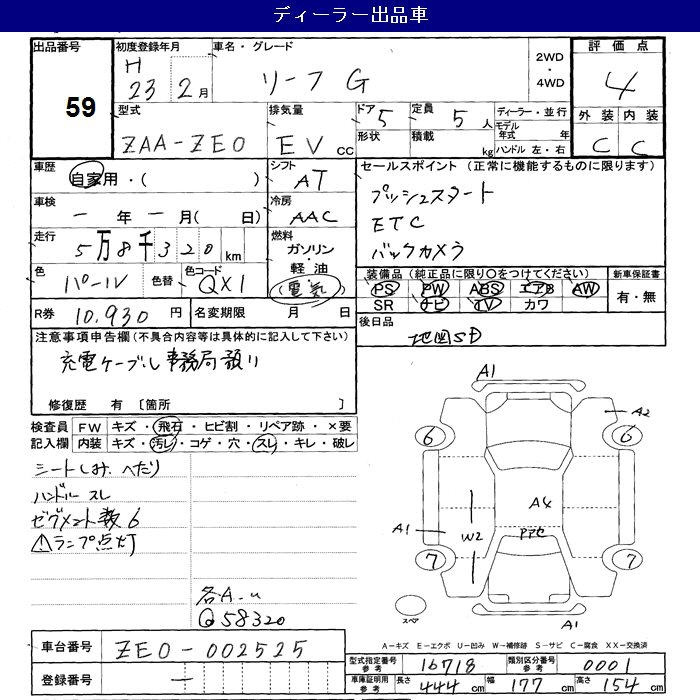 ディーラー出品車
出品番号 59
初度登録年月 H 23年 2月
車名・グレード リーフ G
2WD・4WD
評価点 4
外装 C 内装 C
型式 ZAA-ZE0
排気量 EV cc
ドア 5 形状
定員 5人 積載 kg
ディーラー・並行
モデル年式 年
ハンドル 左・右
車歴 自家用・( )
シフト AT
セールスポイント (正常に機能するものに限ります)
プッシュスタート
ETC
バックカメラ
車検 ー年ー月( 日)
冷房 AAC
走行 5万8千320km
燃料 ガソリン・軽油(電気)
色 パール 色替 色コード QX1
装備品 (純正品に限り○をつけてください)
PS PW ABS エアB AW
SR ナビ TV カワ
新車保証書 有・無
R券 10,930円
名変期限 月 日
後日品 地図SD
注意事項申告欄(不具合内容等は具体的に記入して下さい)
充電ケーブル事務局預り
修復歴 有 [箇所 ]
検査員記入欄
FW キズ・飛石・ヒビ割・リペア跡・×要
内装 キズ・汚レ・コゲ・穴・スレ・キレ・破レ
シートしみ、へたり
ハンドル スレ
セグメント数6
⚠ランプ点灯
各A.u
Q58320
A1
A2
6
6
A4
A1
W2
アアセ
7
7
スペア
A1
A-キズ E-エクボ U-凹み W-補修跡 S-サビ C-腐食 XX-交換済
車台番号 ZE0-002525
登録番号 ー
型式指定番号 参考 16718
類別区分番号 参考 0001
車庫証明用 参考 長さ 444cm 幅 177cm 高さ 154cm